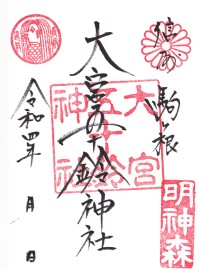 信州
駒ヶ根
大宮五十鈴神社
大宮
五十鈴
神社
明神森
令和四年 月 日